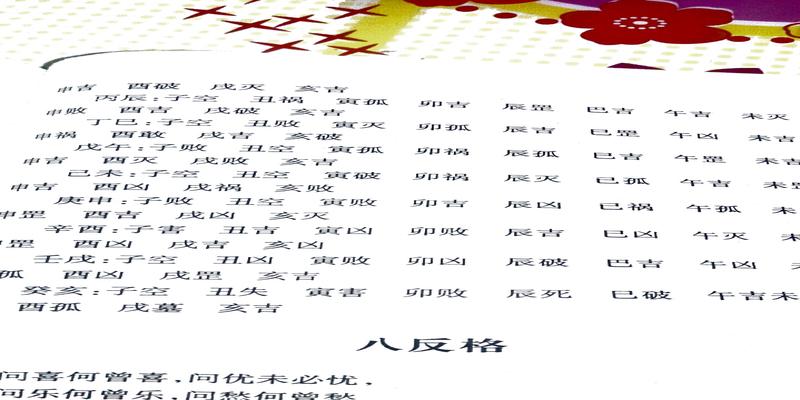 申吉 酉破 戌灭 亥吉
丙辰:子空 丑祸 寅孤 卯吉 辰罡 巳吉 午吉 未灭
申败 酉吉 戌破 亥吉
丁巳:子空 丑败 寅灭 卯孤 辰吉 巳罡 午凶 未吉
申祸 酉败 戌吉 亥破
戊午:子败 丑空 寅孤 卯祸 辰孤 巳吉 午罡 未吉
申吉 酉灭 戌败 亥吉
己未:子空 丑空 寅破 卯祸 辰灭 巳孤 午吉 未罡
申吉 酉凶 戌祸 亥败
庚申:子败 丑空 寅败 卯吉 辰凶 巳祸 午孤 未
申罡 酉吉 戌凶 亥灭
辛酉:子害 丑吉 寅凶 卯败 辰吉 巳凶 午灭 未
罡 酉凶 戌吉 亥凶
壬戌:子空 丑凶 寅败 卯凶 辰破 巳吉 午凶
孤 酉凶 戌罡 亥吉
癸亥:子空 丑失 寅害 卯败 辰死 巳破 午吉未
酉孤 戌墓 亥吉
八反格
问喜何曾喜,问忧未必忧,
问乐何曾乐,问愁何曾愁